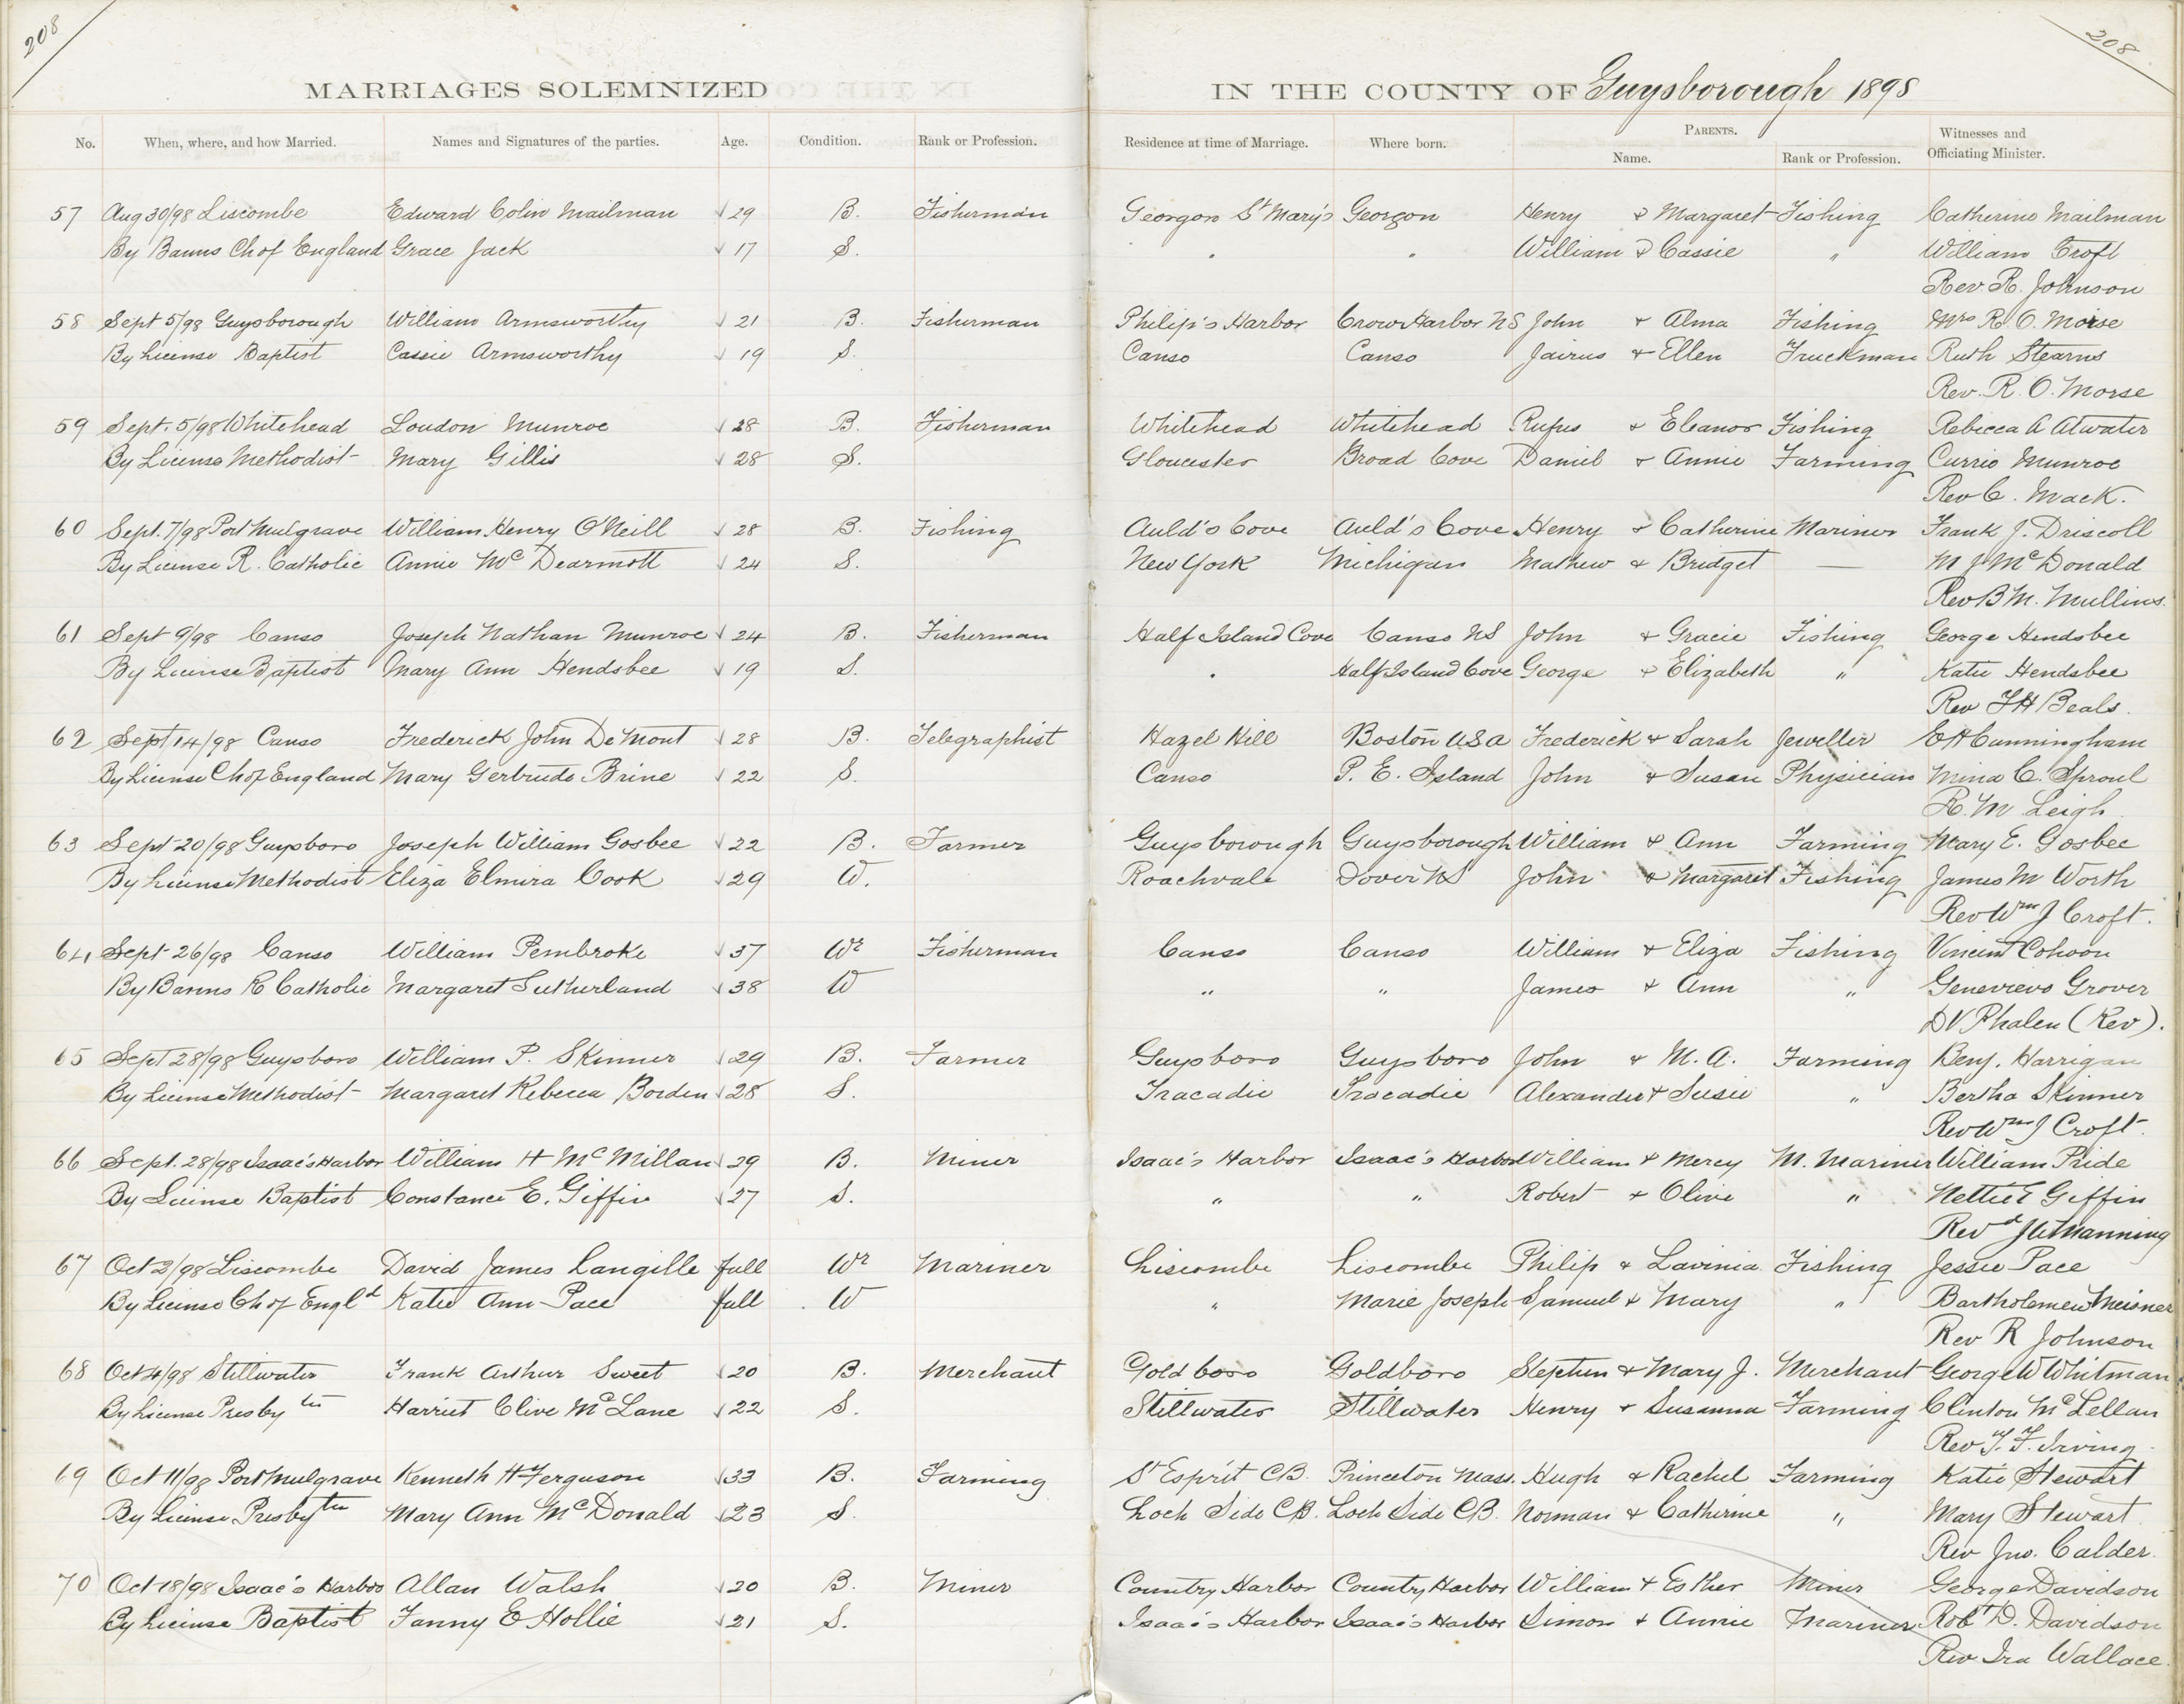 208
208
MARRIAGES SOLEMNIZED IN THE COUNTY OF Guysborough 1898
No. When, where, and how Married. Names and Signatures of the parties. Age. Condition. Rank or Profession. Residence at time of Marriage. Where born. PARENTS. Name. Rank or Profession. Witnesses and Officiating Minister.
57 Aug 30/98 Liscombe Edward Colin Mailman 29 B. Fisherman St Mary's Henry & Margaret Fishing Catherine Mailman
By Banns Ch of England Grace Jack 17 S. " " William & Cassie " William Croft
Rev. R. Johnson
58 Sept 5/98 Guysborough William Armsworthy 21 B. Fisherman Philip's Harbor Crow Harbor NS John & Alma Fishing Mrs R. O. Morse
By License Baptist Cassie Armsworthy 19 S. Canso Canso Jairus & Ellen Truckman Ruth Stearns
Rev. R. O. Morse
59 Sept. 5/98 Whitehead Loudon Munroe 28 B. Fisherman Whitehead Whitehead Rufus & Eleanor Fishing Rebecca A Atwater
By License Methodist Mary Gillis 28 S. Gloucester Broad Cove Daniel & Annie Farming Currie Munroe
Rev C. Mack.
60 Sept. 7/98 Port Mulgrave William Henry O'Neill 28 B. Fishing Auld's Cove Auld's Cove Henry & Catherine Mariner Frank J. Driscoll
By License R. Catholic Annie McDearmott 24 S. New York Michigan Mathew & Bridget — M J McDonald
Rev B M. Mullins.
61 Sept 9/98 Canso Joseph Nathan Munroe 24 B. Fisherman Half Island Cove Canso NS John & Gracie Fishing George Hendsbee
By License Baptist Mary Ann Hendsbee 19 S. " Half Island Cove George & Elizabeth " Katie Hendsbee
Rev F H Beals.
62 Sept 14/98 Canso Frederick John DeMont 28 B. Telegraphist Hazel Hill Boston USA Frederick & Sarah Jeweller E H Cunningham
By License Ch of England Mary Gertrude Brine 22 S. Canso P. E. Island John & Susan Physician Mina C. Sproul
R. M Leigh
63 Sept 20/98 Guysboro Joseph William Gosbee 22 B. Farmer Guysborough Guysborough William & Ann Farming Mary E. Gosbee
By License Methodist Eliza Elmira Cook 29 W. Roachvale Dover NS John & Margaret Fishing James M Worth
Rev Wm J Croft.
64 Sept 26/98 Canso William Pembroke 37 Wr Fisherman Canso Canso William & Eliza Fishing Vincent Cohoon
By Banns R Catholic Margaret Sutherland 38 W " " James & Ann " Genevieve Grover
D V Phalen (Rev).
65 Sept 28/98 Guysboro William P. Skinner 29 B. Farmer Guysboro Guysboro John & M. A. Farming Benj. Harrigan
By License Methodist Margaret Rebecca Borden 28 S. Tracadie Tracadie Alexander & Susie " Bertha Skinner
Rev Wm J Croft.
66 Sept. 28/98 Isaac's Harbor William H McMillan 29 B. Miner Isaac's Harbor Isaac's Harbor William & Mercy M. Mariner William Pride
By License Baptist Constance E. Giffin 27 S. " " Robert & Olive " Nettie E Giffin
Revd Manning
67 Oct 2/98 Liscombe David James Langille full Wr Mariner Liscombe Liscombe Philip & Lavinia Fishing Jessie Pace
By License Ch of Engld Katie Ann Pace full W " Marie Joseph Samuel & Mary " Bartholemew Meisner
Rev R Johnson
68 Oct 4/98 Stillwater Frank Arthur Sweet 20 B. Merchant Goldboro Goldboro Stephen & Mary J. Merchant George W Whitman
By License Presbyten Harriet Olive McLane 22 S. Stillwater Stillwater Henry & Susanna Farming Clinton McLellan
Rev T. F. Irving.
69 Oct 11/98 Port Mulgrave Kenneth H Ferguson 33 B. Farming St Esprit CB. Princeton Mass. Hugh & Rachel Farming Katie Stewart
By License Presbyten Mary Ann McDonald 23 S. Loch Side CB. Loch Side CB. Norman & Catherine " Mary Stewart
Rev Jno. Calder.
70 Oct 18/98 Isaac's Harbor Allan Walsh 20 B. Miner Country Harbor Country Harbor William & Esther Miner George Davidson
By License Baptist Fanny E Hollie 21 S. Isaac's Harbor Isaac's Harbor Simon & Annie Mariner Robt D. Davidson
Rev Ira Wallace.